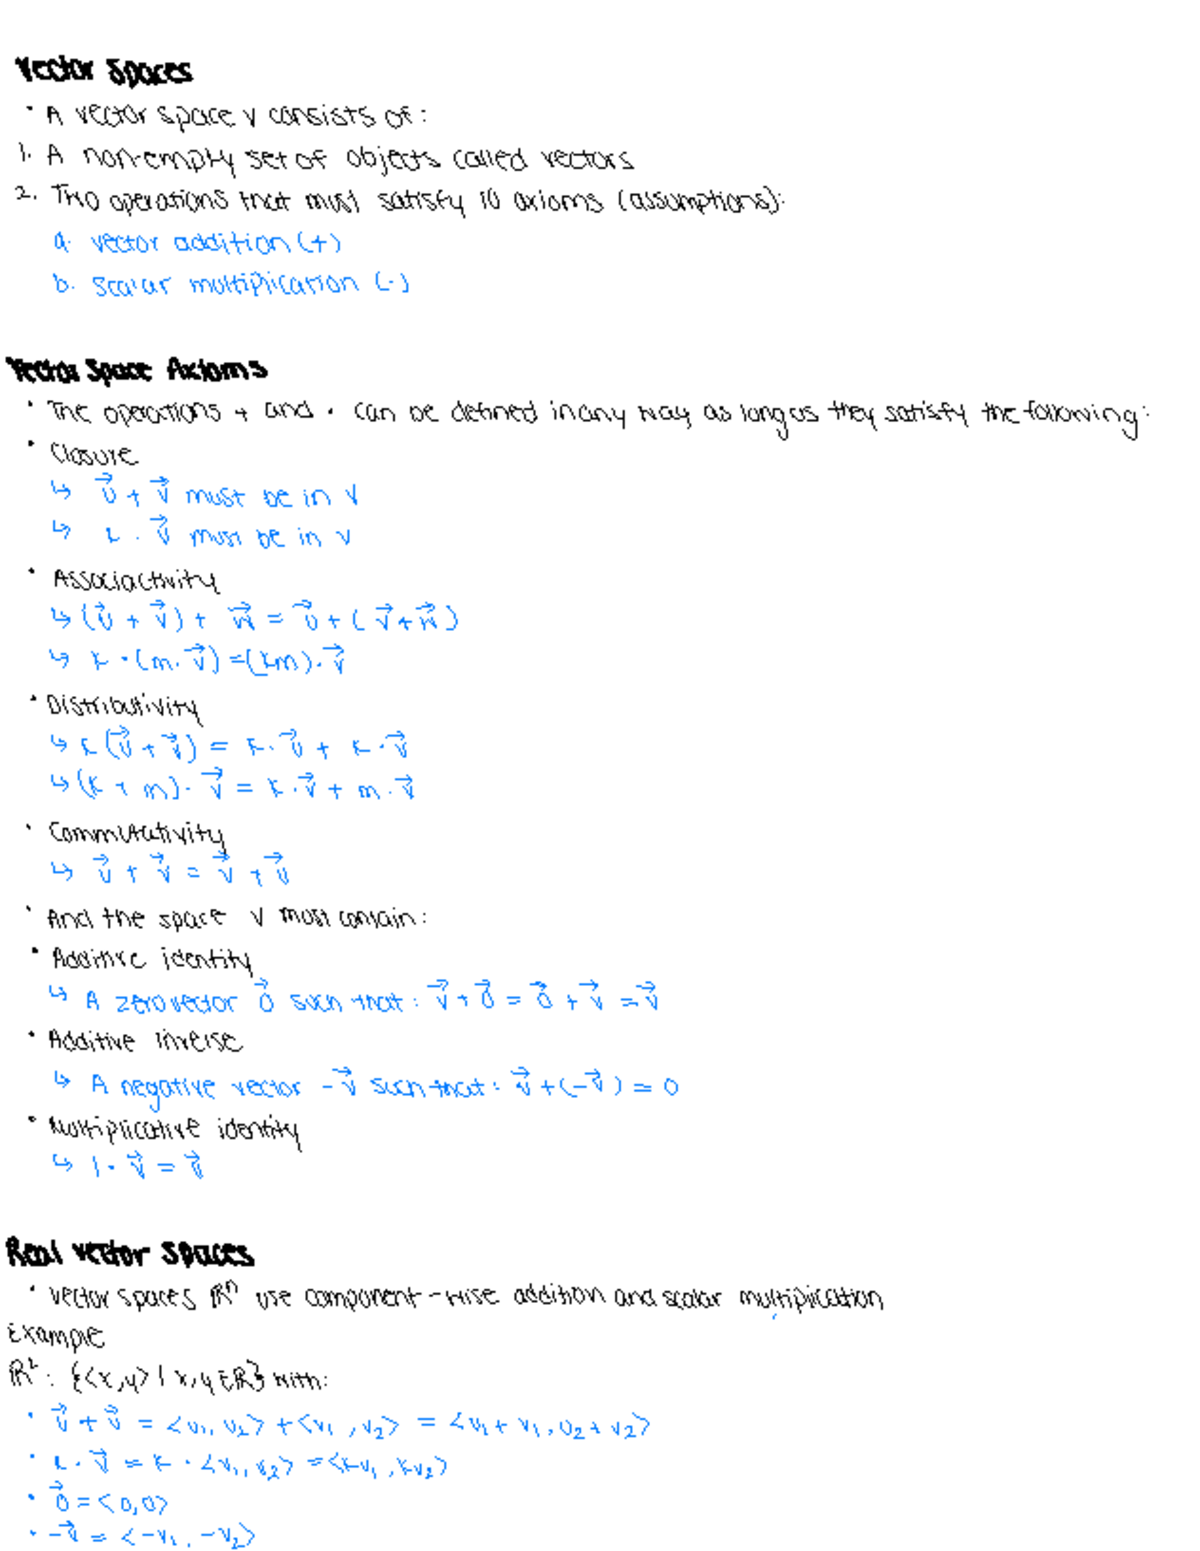 Vector Spaces
• A vector space V consists of:
1. A non-empty set of objects called vectors
2. Two operations that must satisfy 10 axioms (assumptions):
a. vector addition (+)
b. scalar multiplication (·)
Vector Space Axioms
• The operations + and · can be defined in any way as long as they satisfy the following:
• Closure
↳ u⃗ + v⃗ must be in V
↳ k · v⃗ must be in V
• Associactivity
↳ (u⃗ + v⃗) + w⃗ = u⃗ + (v⃗ + w⃗)
↳ k · (m · v⃗) = (km) · v⃗
• Distributivity
↳ k(u⃗ + v⃗) = k · u⃗ + k · v⃗
↳ (k + m) · v⃗ = k · v⃗ + m · v⃗
• Commutativity
↳ u⃗ + v⃗ = v⃗ + u⃗
• And the space V must contain:
• Additive identity
↳ A zero vector 0⃗ such that: v⃗ + 0⃗ = 0⃗ + v⃗ = v⃗
• Additive inverse
↳ A negative vector -v⃗ such that: v⃗ + (-v⃗) = 0
• Multiplicative identity
↳ 1 · v⃗ = v⃗
Real vector spaces
• vector spaces ℝⁿ use component-wise addition and scalar multiplication
Example
ℝ²: {<x,y> | x,y ∈ ℝ} with:
• u⃗ + v⃗ = <u₁, u₂> + <v₁, v₂> = <u₁ + v₁, u₂ + v₂>
• k · v⃗ = k · <v₁, v₂> = <kv₁, kv₂>
• 0⃗ = <0,0>
• -v⃗ = <-v₁, -v₂>